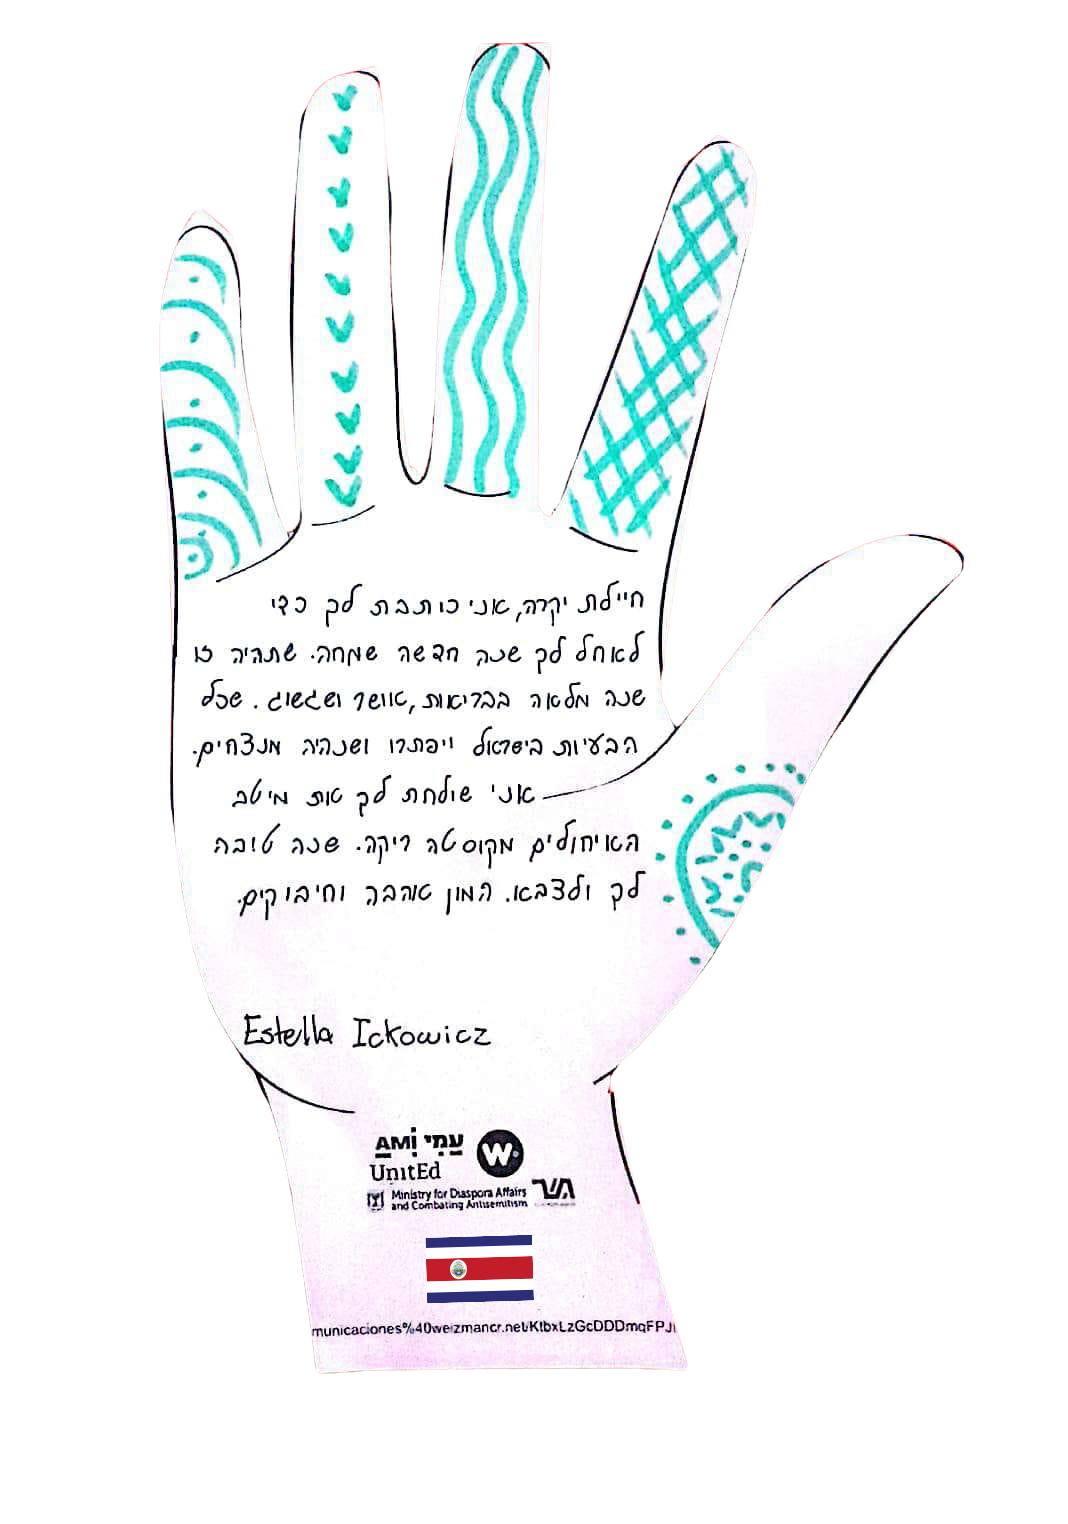 חיילת יקרה, אני כותבת לך כדי
לאחל לך שנה חדשה שמחה. שתהיה זו
שנה מלאה בבריאות, אושר ושגשוג. שכל
הבעיות בישראל ייפתרו ושנהיה מנצחים.
אני שולחת לך את מיטב
האיחולים מקוסטה ריקה. שנה טובה
לך ולצבא. המון אהבה וחיבוקים.
Estella Ickowicz
AMI עַמִּי
UnitEd
W.
Ministry for Diaspora Affairs
and Combating Antisemitism
municaciones%40weizmancr.net/KtbxLzGcDDDmqFPJ